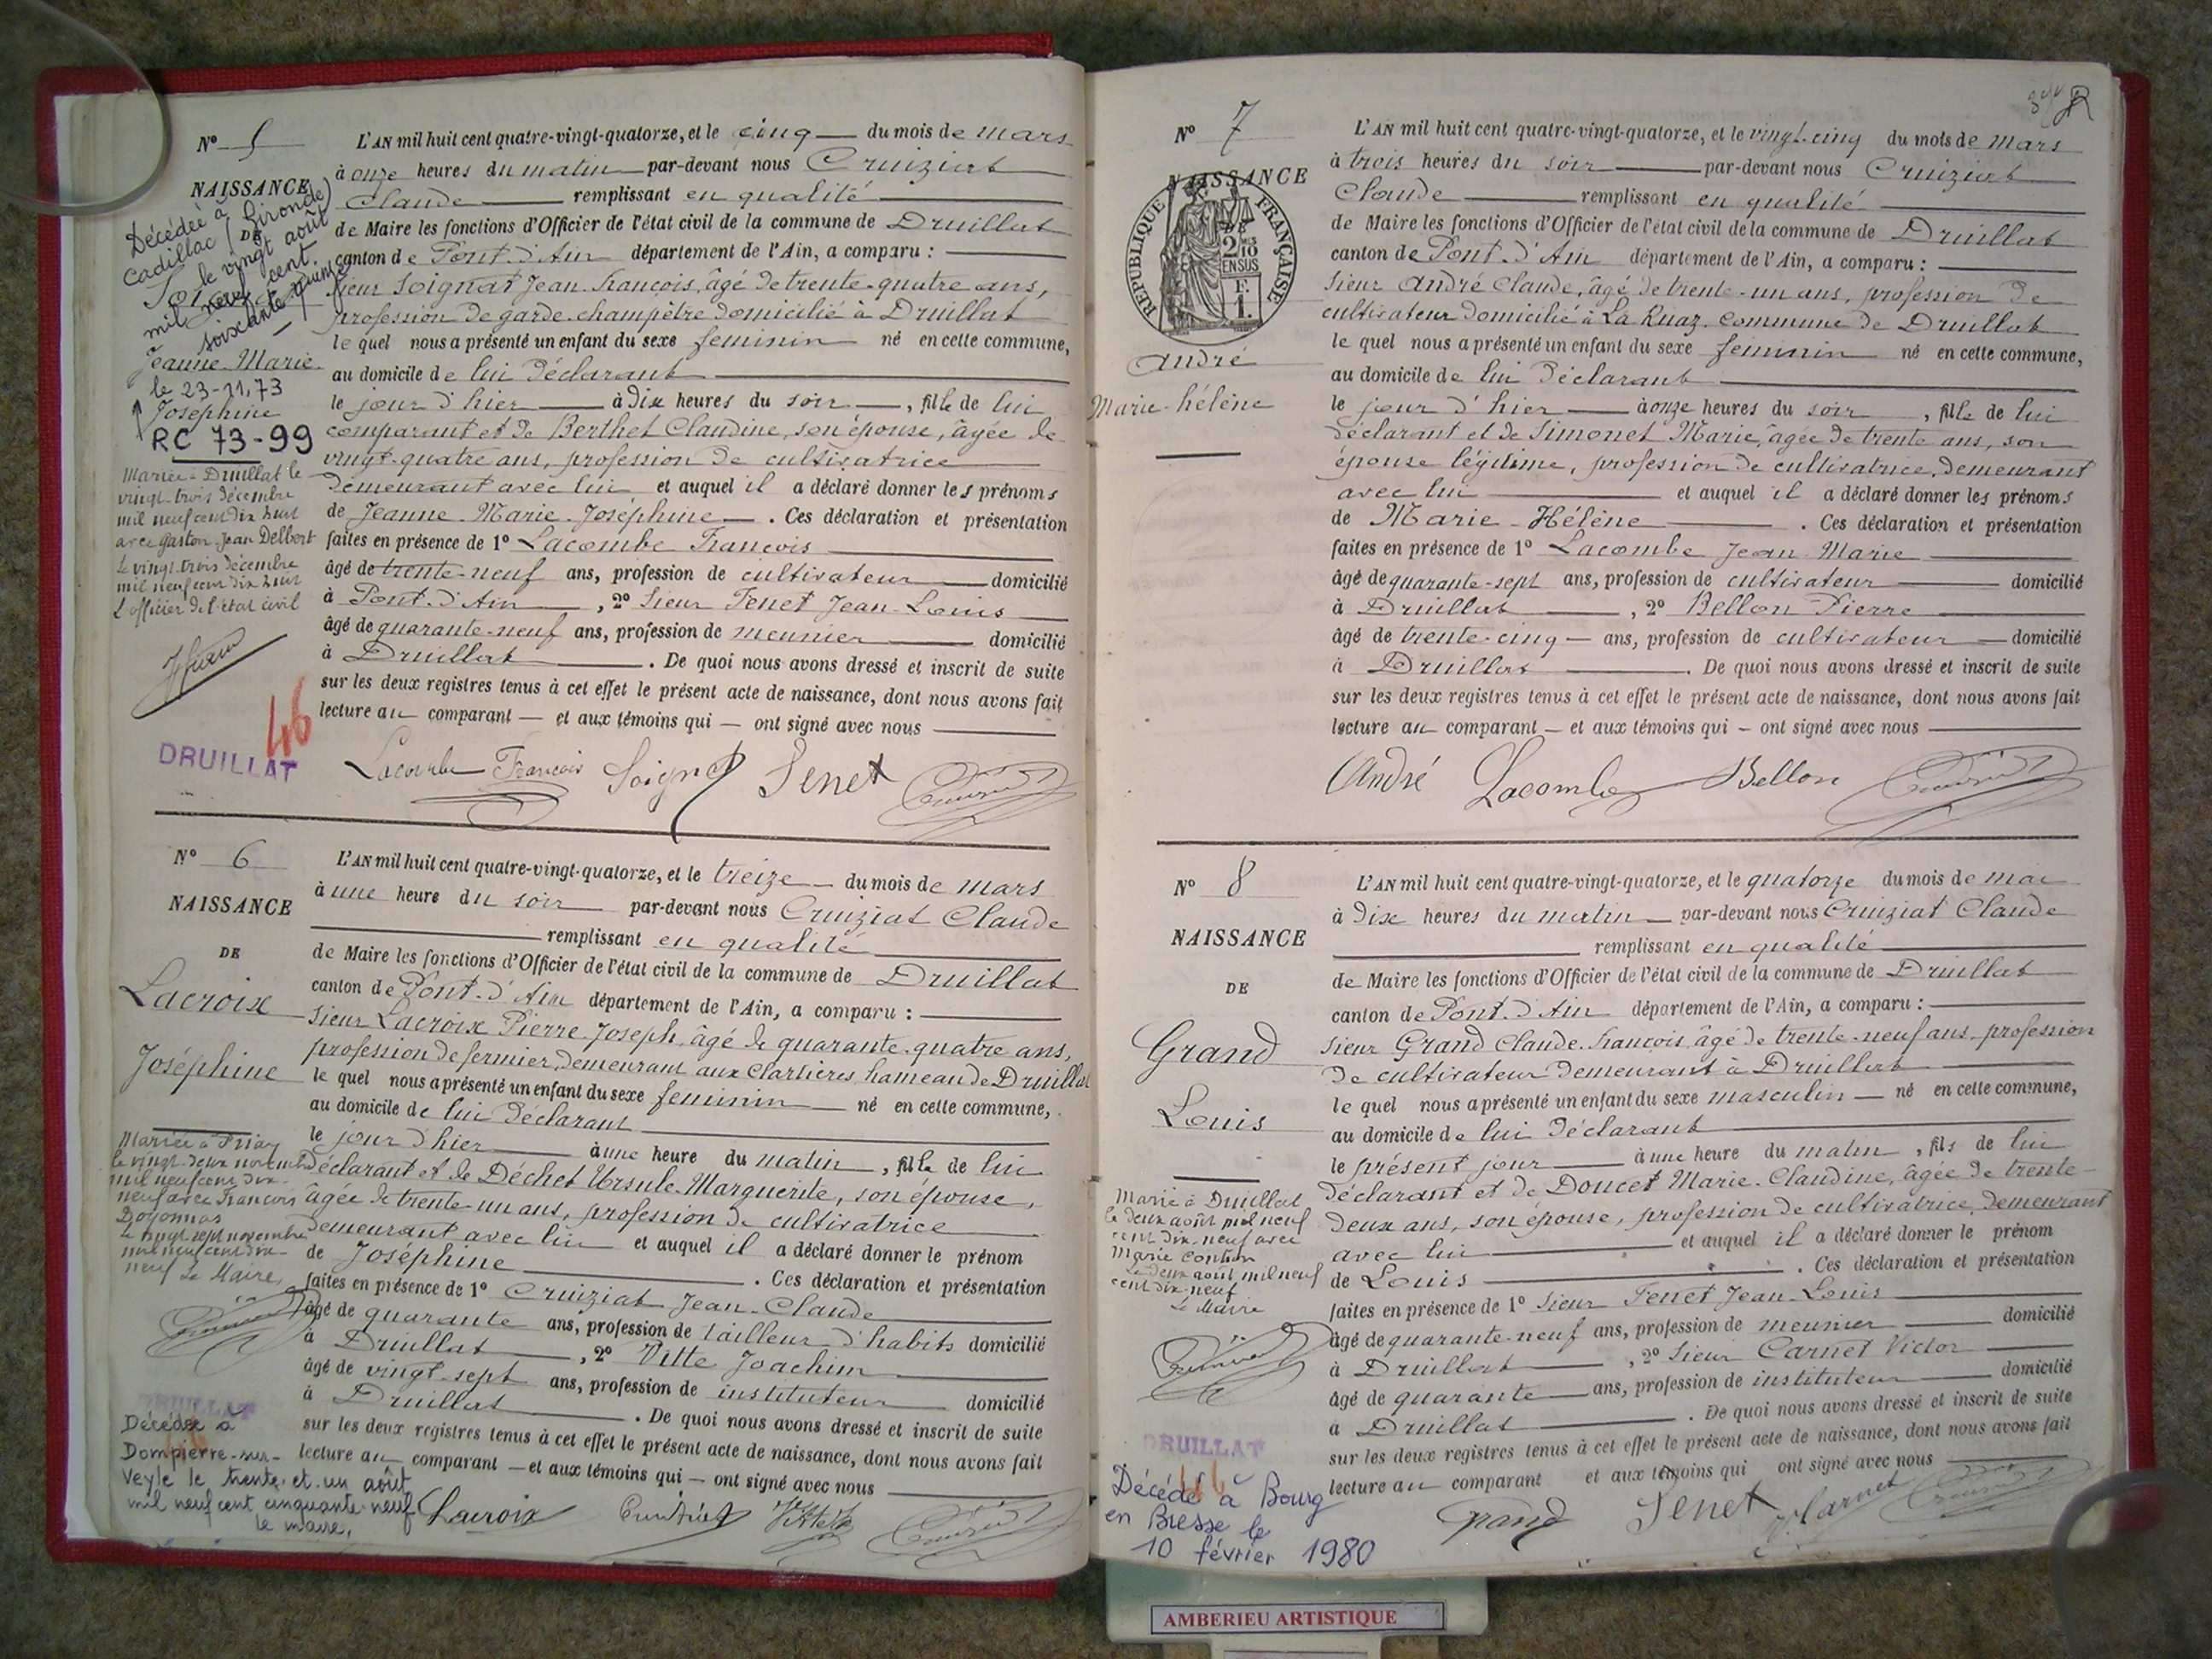 Nº 5
NAISSANCE
DE
Soignat
Jeanne-Marie
Joséphine
Décédée à
Cadillac (Gironde)
le vingt août
mil neuf cent
soixante quinze
le 23-11,73
RC 73-99
Mariée à Druillat le
vingt-trois décembre
mil neuf cent dix huit
avec Gaston Jean Delbert
Le vingt trois décembre
mil neuf cent dix huit
L'officier de l'état civil
46
DRUILLAT
L'AN mil huit cent quatre-vingt-quatorze, et le cinq du mois de mars
à onze heures du matin par-devant nous Cruiziat
Claude remplissant en qualité
de Maire les fonctions d'Officier de l'état civil de la commune de Druillat
canton de Pont-d'Ain département de l'Ain, a comparu :
sieur Soignat Jean-François, âgé de trente-quatre ans,
profession de garde-champêtre domicilié à Druillat
le quel nous a présenté un enfant du sexe féminin né en cette commune,
au domicile de lui déclarant
le jour d'hier à dix heures du soir, fille de lui
comparant et de Berthet Claudine, son épouse, âgée de
vingt-quatre ans, profession de cultivatrice
demeurant avec lui et auquel il a déclaré donner les prénoms
de Jeanne-Marie-Joséphine. Ces déclaration et présentation
faites en présence de 1º Lacombe François
âgé de trente-neuf ans, profession de cultivateur domicilié
à Pont-d'Ain, 2º Sieur Tenet Jean-Louis
âgé de quarante-neuf ans, profession de meunier domicilié
à Druillat. De quoi nous avons dressé et inscrit de suite
sur les deux registres tenus à cet effet le présent acte de naissance, dont nous avons fait
lecture au comparant — et aux témoins qui — ont signé avec nous
Lacombe François Soignat Tenet Cruiziat
Nº 6
NAISSANCE
DE
Lacroix
Joséphine
Mariée à Priay
le vingt-deux novembre
mil neuf cent dix-
neuf avec François
Doyonnas
Le vingt sept novembre
mil neuf cent dix-
neuf Le Maire,
DRUILLAT
Décédée à
Dompierre-sur-
Veyle le trente-et-un août
mil neuf cent cinquante-neuf
le maire,
L'AN mil huit cent quatre-vingt-quatorze, et le treize du mois de mars
à une heure du soir par-devant nous Cruiziat Claude
remplissant en qualité
de Maire les fonctions d'Officier de l'état civil de la commune de Druillat
canton de Pont-d'Ain département de l'Ain, a comparu :
sieur Lacroix Pierre-Joseph, âgé de quarante-quatre ans,
profession de fermier, demeurant aux Clartières, hameau de Druillat
le quel nous a présenté un enfant du sexe féminin né en cette commune,
au domicile de lui déclarant
le jour d'hier à une heure du matin, fille de lui
déclarant et de Déchet Ursule-Marguerite, son épouse,
âgée de trente-un ans, profession de cultivatrice
demeurant avec lui et auquel il a déclaré donner le prénom
de Joséphine. Ces déclaration et présentation
faites en présence de 1º Cruiziat Jean-Claude
âgé de quarante ans, profession de tailleur d'habits domicilié
à Druillat, 2º Vitte Joachim
âgé de vingt-sept ans, profession de instituteur domicilié
à Druillat. De quoi nous avons dressé et inscrit de suite
sur les deux registres tenus à cet effet le présent acte de naissance, dont nous avons fait
lecture au comparant — et aux témoins qui — ont signé avec nous
Lacroix Cruiziat Vitte Cruiziat
Nº 7
NAISSANCE
RÉPUBLIQUE FRANÇAISE
2/10 EN SUS
F. 1.
André
Marie-hélène
L'AN mil huit cent quatre-vingt-quatorze, et le vingt-cinq du mois de mars
à trois heures du soir par-devant nous Cruiziat
Claude remplissant en qualité
de Maire les fonctions d'Officier de l'état civil de la commune de Druillat
canton de Pont-d'Ain département de l'Ain, a comparu :
sieur André Claude, âgé de trente-un ans, profession de
cultivateur domicilié à La Ruaz, commune de Druillat
le quel nous a présenté un enfant du sexe féminin né en cette commune,
au domicile de lui déclarant
le jour d'hier à onze heures du soir, fille de lui
déclarant et de Simonet Marie, âgée de trente ans, son
épouse légitime, profession de cultivatrice, demeurant
avec lui et auquel il a déclaré donner les prénoms
de Marie-Hélène. Ces déclaration et présentation
faites en présence de 1º Lacombe Jean-Marie
âgé de quarante-sept ans, profession de cultivateur domicilié
à Druillat, 2º Bellon Pierre
âgé de trente-cinq ans, profession de cultivateur domicilié
à Druillat. De quoi nous avons dressé et inscrit de suite
sur les deux registres tenus à cet effet le présent acte de naissance, dont nous avons fait
lecture au comparant — et aux témoins qui — ont signé avec nous
André Lacombe Bellon Cruiziat
Nº 8
NAISSANCE
DE
Grand
Louis
Marié à Druillat
le deux août mil neuf
cent dix-neuf avec
Marie
Le deux août mil neuf
cent dix-neuf
Le Maire
DRUILLAT
Décédé à Bourg
en Bresse le
10 février 1980
L'AN mil huit cent quatre-vingt-quatorze, et le quatorze du mois de mai
à dix heures du matin par-devant nous Cruiziat Claude
remplissant en qualité
de Maire les fonctions d'Officier de l'état civil de la commune de Druillat
canton de Pont-d'Ain département de l'Ain, a comparu :
sieur Grand Claude-François âgé de trente-neuf ans, profession
de cultivateur demeurant à Druillat
le quel nous a présenté un enfant du sexe masculin né en cette commune,
au domicile de lui déclarant
le présent jour à une heure du matin, fils de lui
déclarant et de Doucet Marie-Claudine, âgée de trente-
deux ans, son épouse, profession de cultivatrice, demeurant
avec lui et auquel il a déclaré donner le prénom
de Louis. Ces déclaration et présentation
faites en présence de 1º Sieur Tenet Jean-Louis
âgé de quarante-neuf ans, profession de meunier domicilié
à Druillat, 2º Sieur Carnet Victor
âgé de quarante ans, profession de instituteur domicilié
à Druillat. De quoi nous avons dressé et inscrit de suite
sur les deux registres tenus à cet effet le présent acte de naissance, dont nous avons fait
lecture au comparant et aux témoins qui ont signé avec nous
Grand Tenet V. Carnet Cruiziat
AMBERIEU ARTISTIQUE